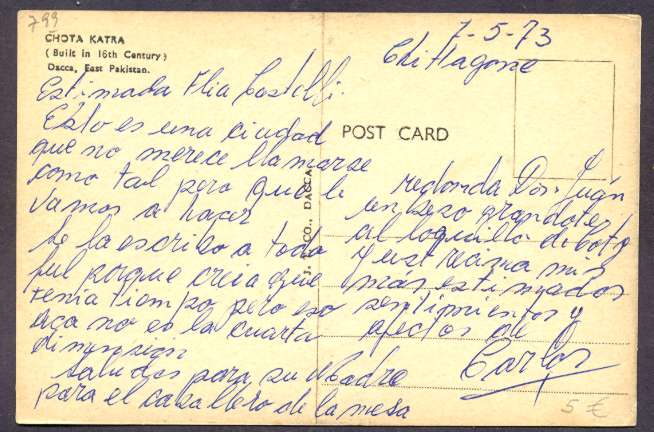 799
CHOTA KATRA
( Built in 16th Century )
Dacca, East Pakistan.
7-5-73
Chittagone
POST CARD
J. P. CO., DACCA
Estimada Flia Castelli.
Esto es una ciudad
que no merece llamarse
como tal pero que le
vamos a hacer
Se la escribo a todo
ful porque creia que
tenia tiempo pero eso
aca no es la cuarta
dimension
Saludos para su Madre
para el caballero de la mesa
redonda Don Juán
un beso grandote
al loquillo de
y reciba mis
más estimados
sentimientos y
afectos de
Carlos
5 €